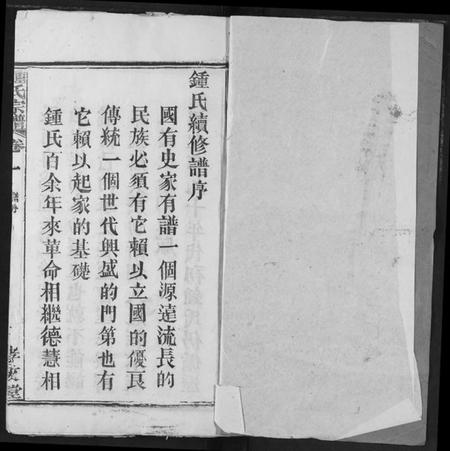 鍾氏續修譜序
國有史家有譜一個源遠流長的
民族必須有它賴以立國的優良
傳統一個世代興盛的門第也有
它賴以起家的基礎
鍾氏百余年來革命相繼德慧相
氏宗譜
卷一
堂